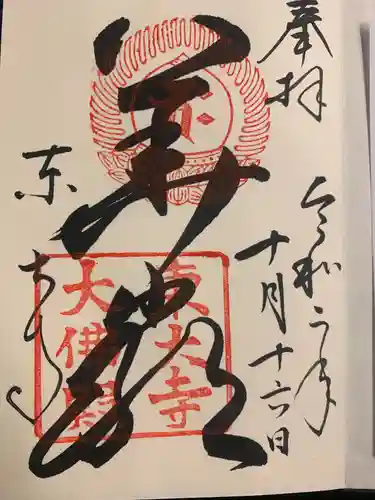 奉拝
令和二年
十月十六日
華厳
東大寺
東大寺
大佛殿